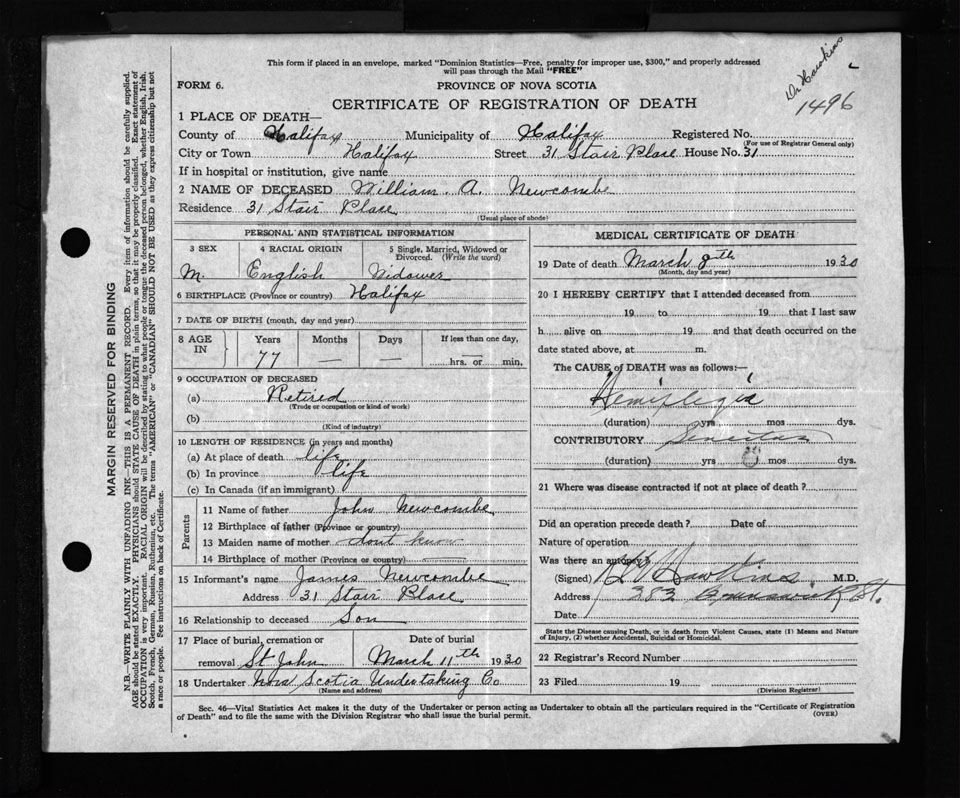 This form if placed in an envelope, marked "Dominion Statistics—Free, penalty for improper use, $300," and properly addressed
will pass through the Mail "FREE"
Dr Hawkins
1496
FORM 6.
PROVINCE OF NOVA SCOTIA
CERTIFICATE OF REGISTRATION OF DEATH
1 PLACE OF DEATH—
County of Halifax Municipality of Halifax Registered No.
(For use of Registrar General only)
City or Town Halifax Street 31 Stair Place House No. 31
If in hospital or institution, give name
2 NAME OF DECEASED William A. Newcombe
Residence 31 Stair Place
(Usual place of abode)
PERSONAL AND STATISTICAL INFORMATION
3 SEX 4 RACIAL ORIGIN 5 Single, Married, Widowed or
Divorced. (Write the word)
M. English Widower
6 BIRTHPLACE (Province or country) Halifax
7 DATE OF BIRTH (month, day and year)
8 AGE IN Years Months Days If less than one day,
77 — — hrs. or min.
9 OCCUPATION OF DECEASED
(a) Retired
(Trade or occupation or kind of work)
(b)
(Kind of industry)
10 LENGTH OF RESIDENCE (in years and months)
(a) At place of death life
(b) In province life
(c) In Canada (if an immigrant)
Parents
11 Name of father John Newcombe
12 Birthplace of father (Province or country)
13 Maiden name of mother dont know
14 Birthplace of mother (Province or country)
15 Informant's name James Newcombe
Address 31 Stair Place
16 Relationship to deceased Son
17 Place of burial, cremation or Date of burial
removal St John March 11th 1930
18 Undertaker Nova Scotia Undertaking Co
(Name and address)
MEDICAL CERTIFICATE OF DEATH
19 Date of death March 8th 1930
(Month, day and year)
20 I HEREBY CERTIFY that I attended deceased from
19 to 19 that I last saw
h alive on 19 and that death occurred on the
date stated above, at m.
The CAUSE of DEATH was as follows:—
Hemiplegia
(duration) yrs mos dys.
CONTRIBUTORY Senilitas
(duration) yrs mos dys.
21 Where was disease contracted if not at place of death?
Did an operation precede death? Date of
Nature of operation
Was there an autopsy?
(Signed) Hawkins M.D.
Address 382 Brunswick St.
Date
State the Disease causing Death, or in death from Violent Causes, state (1) Means and Nature
of Injury, (2) whether Accidental, Suicidal or Homicidal.
22 Registrar's Record Number
23 Filed 19
(Division Registrar)
Sec. 46—Vital Statistics Act makes it the duty of the Undertaker or person acting as Undertaker to obtain all the particulars required in the "Certificate of Registration
of Death" and to file the same with the Division Registrar who shall issue the burial permit.
(OVER)
MARGIN RESERVED FOR BINDING
N.B.—WRITE PLAINLY WITH UNFADING INK—THIS IS A PERMANENT RECORD. Every item of information should be carefully supplied.
AGE should be stated EXACTLY. PHYSICIANS should STATE CAUSE OF DEATH in plain terms, so that it may be properly classified. Exact statement of
OCCUPATION is very important. RACIAL ORIGIN will be described by stating to what people or tongue the deceased person belonged, whether English, Irish,
Scotch, French, German, Russian, Ruthenian, etc. The terms "AMERICAN" or "CANADIAN" SHOULD NOT BE USED as they express citizenship but not
a race or people. See instructions on back of Certificate.